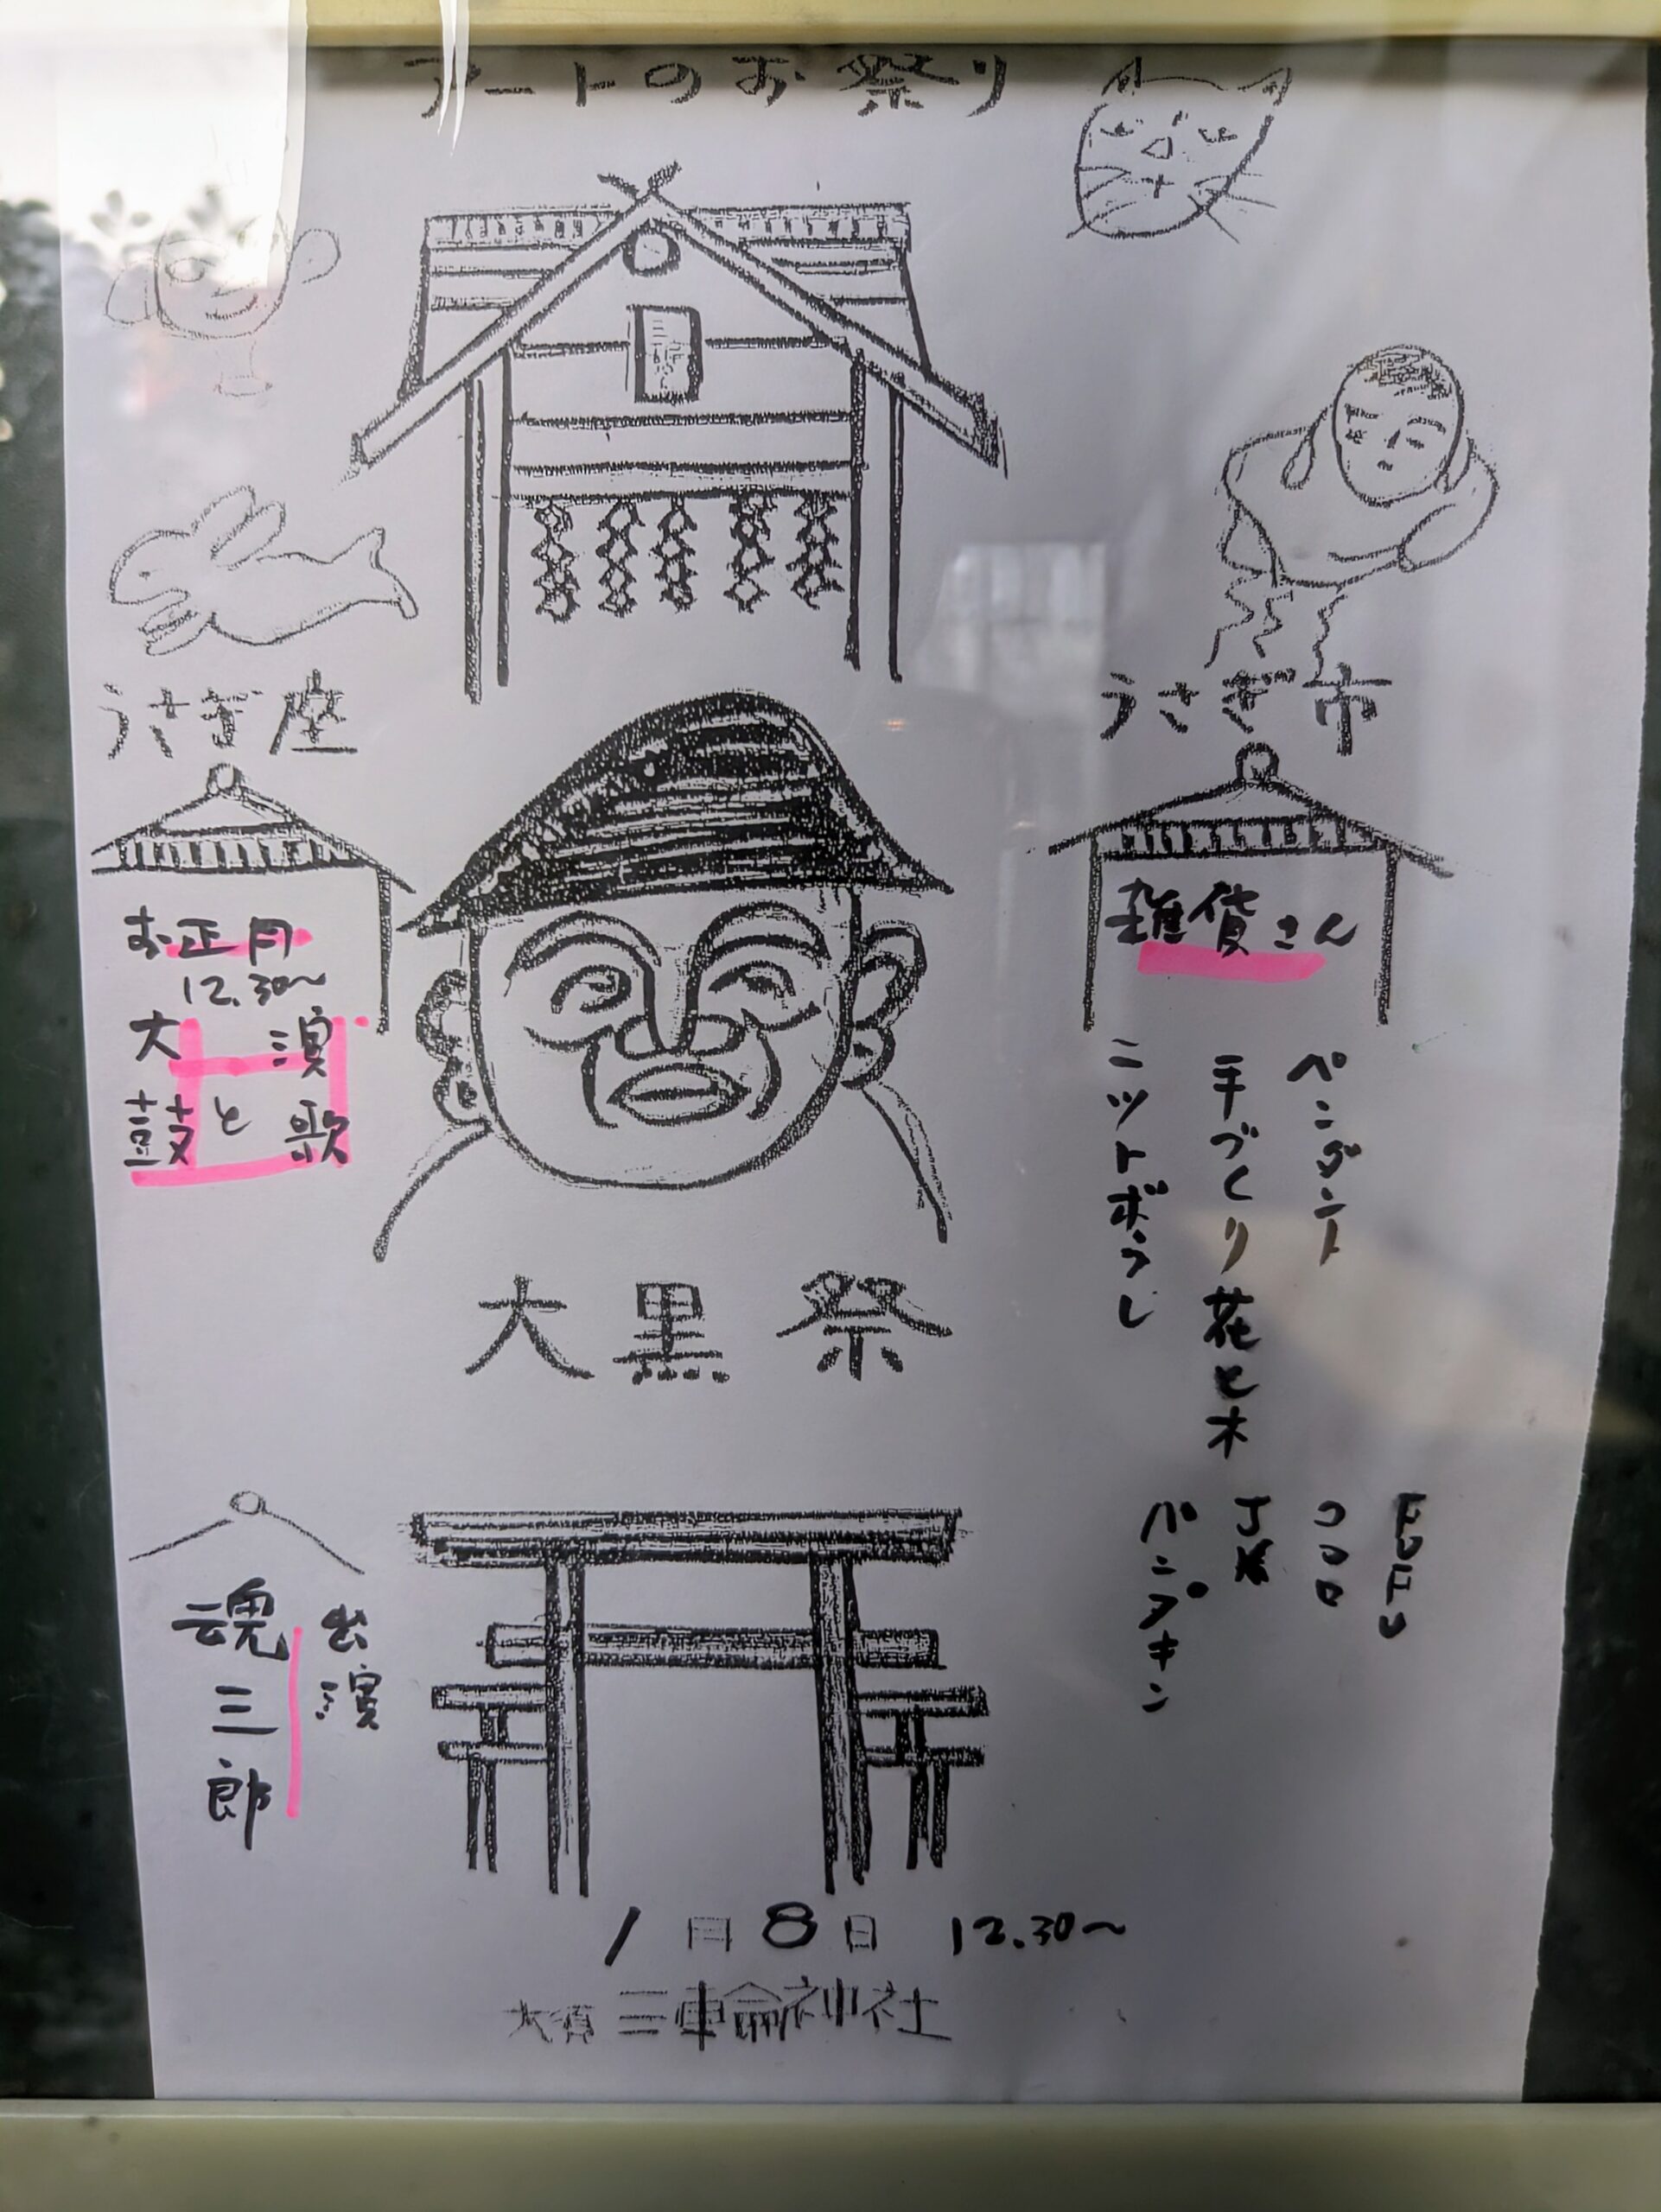 アートのお祭り
うさぎ座
うさぎ市
お正月
12.30〜
大鼓と演歌
雑貨さん
ペンダント
手づくり花と木
ニットボうし
大黒祭
FuFu
コロロ
パンプキン
出演
魂三郎
1月8日 12.30〜
大須 三輪神社